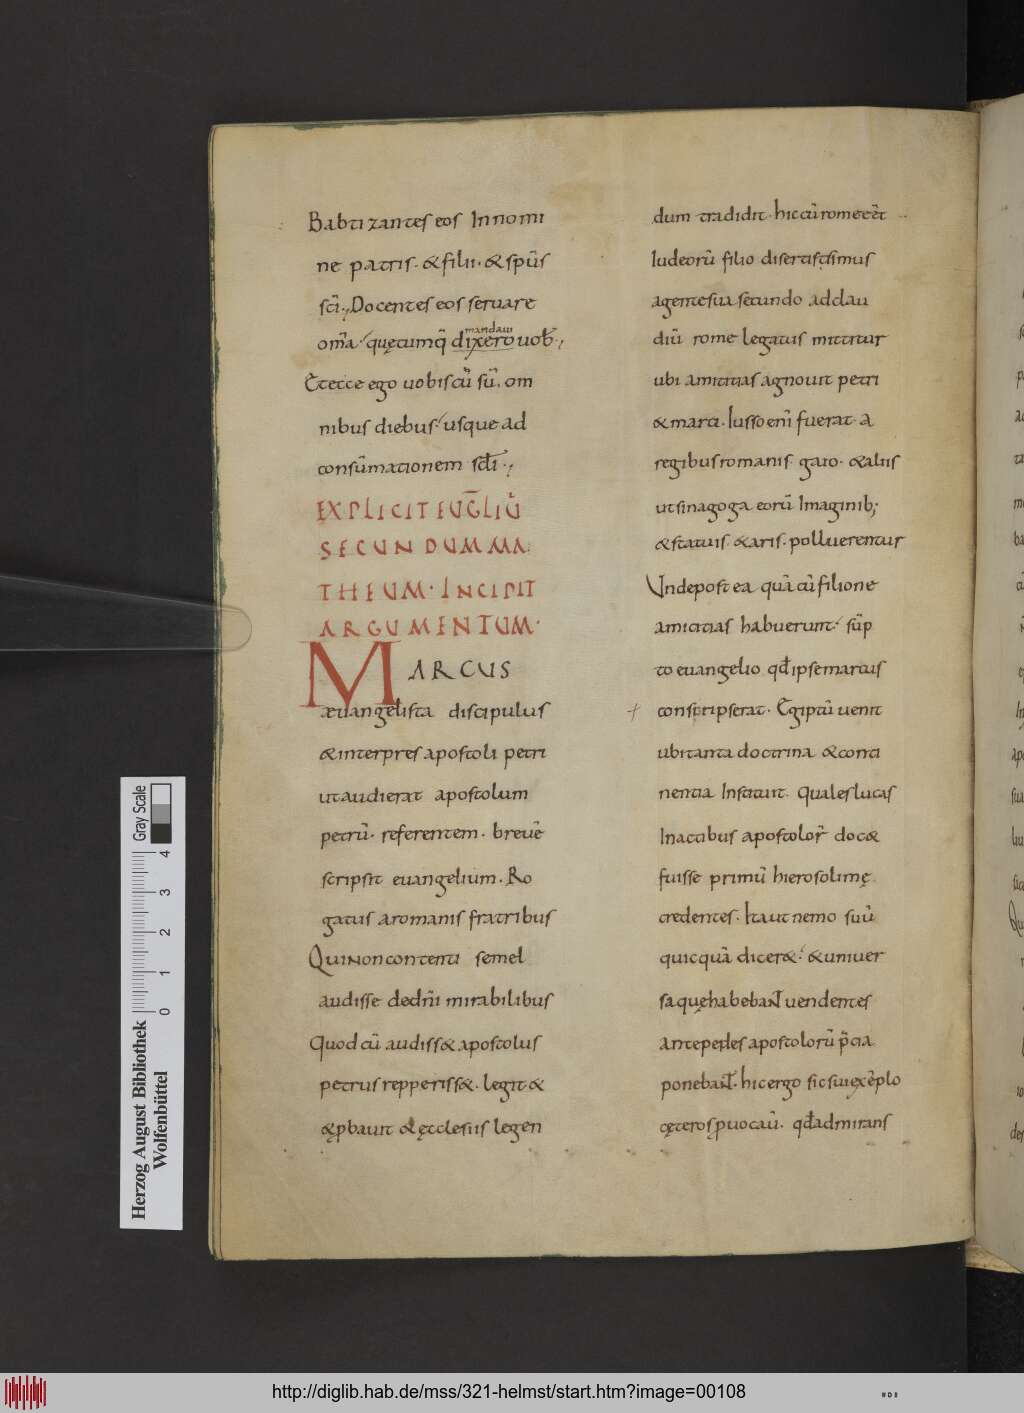 Babtizantes eos In nomi
ne patris · & filii · & spūs
sc̄i ·, Docentes eos seruare
om̄a · quęcumq̄ dixero uob̄ ·,
mandaui
Et ecce ego uobiscū sū . om
nibus diebus · usque ad
consūmationem scl̄i ·,
EXPLICIT EUG̅LIŪ
SECUNDUM MA
THEUM · INCIPIT
ARGUMENTUM ·
MARCUS
æuangelista discipulus
& interpres apostoli petri
ut audierat apostolum
petrū · referentem · breuē
scripsit euangelium · Ro
gatus a romanis fratribus
Qui non contenti semel
audisse dedn̄i mirabilibus
Quod cū audiss& apostolus
petrus repperiss& · legit &
ępbauit & ęcclesiis legen
dum tradidit · hic cū rome eēt
Iudeorū filio disertissimus
agente sua secundo ad clau
diū rome legatus mittitur
ubi amititias agnouit petri
& marci · Iusso enī fuerat · a
regibus romanis · gaio · & aliis
ut sinagoga eorū Imaginib;
& statuis · & aris · polluerentur
Unde postea quā cū filione
amicitias habuerunt · sūp
to euangelio qd̄ ipse marcus
conscripserat · Egiptū uenit
ubi tanta doctrina & conti
nentia Instituit · Quales lucas
In actibus apostolor̄ doc&
fuisse primū hierosolimę
credentes · Ita ut nemo suū
quicquā dicer& · & uniuer
sa quę habebant uendentes
ante pedes apostolorū p̄cia
ponebant · hic ergo sic sui exēplo
cęteros puocaū · qd̄ admirans
Herzog August Bibliothek
Wolfenbüttel
0 1 2 3 4
Gray Scale
http://diglib.hab.de/mss/321-helmst/start.htm?image=00108